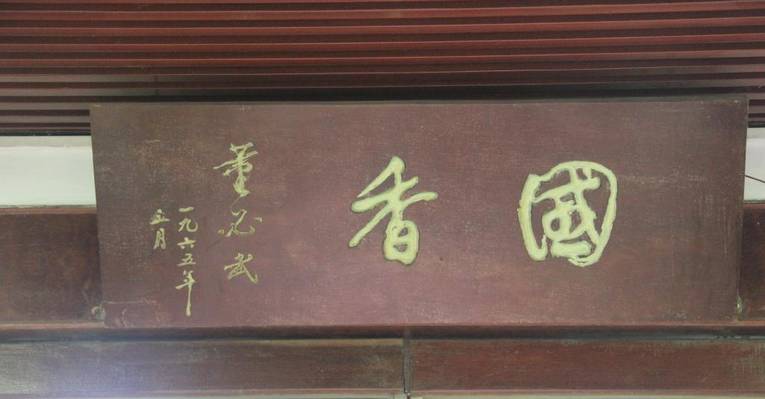 國香
董必武
一九六五年
五月